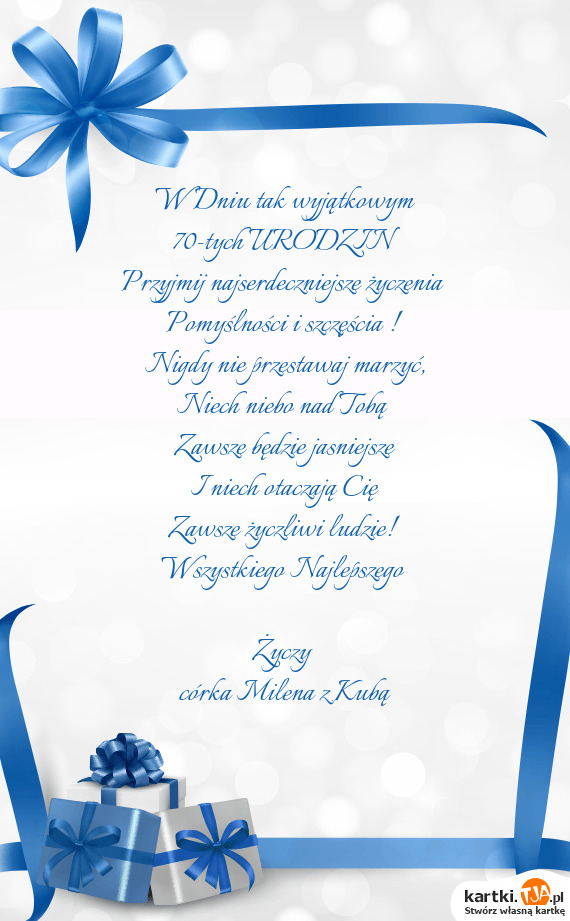 W Dniu tak wyjątkowym
70-tych URODZIN
Przyjmij najserdeczniejsze życzenia
Pomyślności i szczęścia !
Nigdy nie przestawaj marzyć,
Niech niebo nad Tobą
Zawsze będzie jasniejsze
I niech otaczają Cię
Zawsze życzliwi ludzie!
Wszystkiego Najlepszego
Życzy
córka Milena z Kubą
kartki.TJA.pl
Stwórz własną kartkę